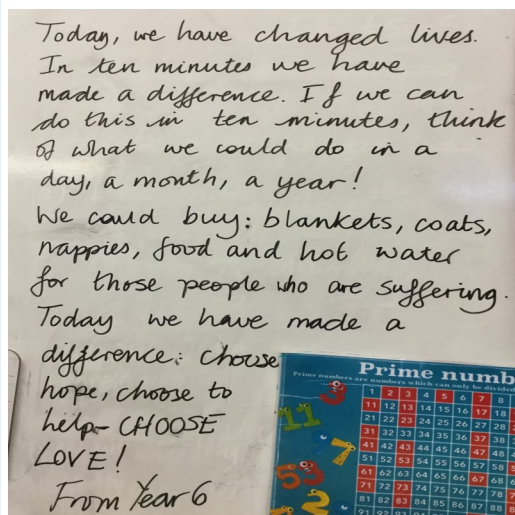 Today, we have changed lives.
In ten minutes we have
made a difference. If we can
do this in ten minutes, think
of what we could do in a
day, a month, a year!
We could buy: blankets, coats,
nappies, food and hot water
for those people who are suffering.
Today we have made a
difference: choose
hope, choose to
help- CHOOSE
LOVE!
From Year 6
Prime numb
Prime numbers are numbers which can only be divided
9
11
7
53
2
1 2 3 4 5 6 7 8
11 12 13 14 15 16 17 18
21 22 23 24 25 26 27 28
31 32 33 34 35 36 37 38
41 42 43 44 45 46 47 48
51 52 53 54 55 56 57 58
61 62 63 64 65 66 67 68
71 72 73 74 75 76 77 78
81 82 83 84 85 86 87 88
91 92 93 94 95 96 97